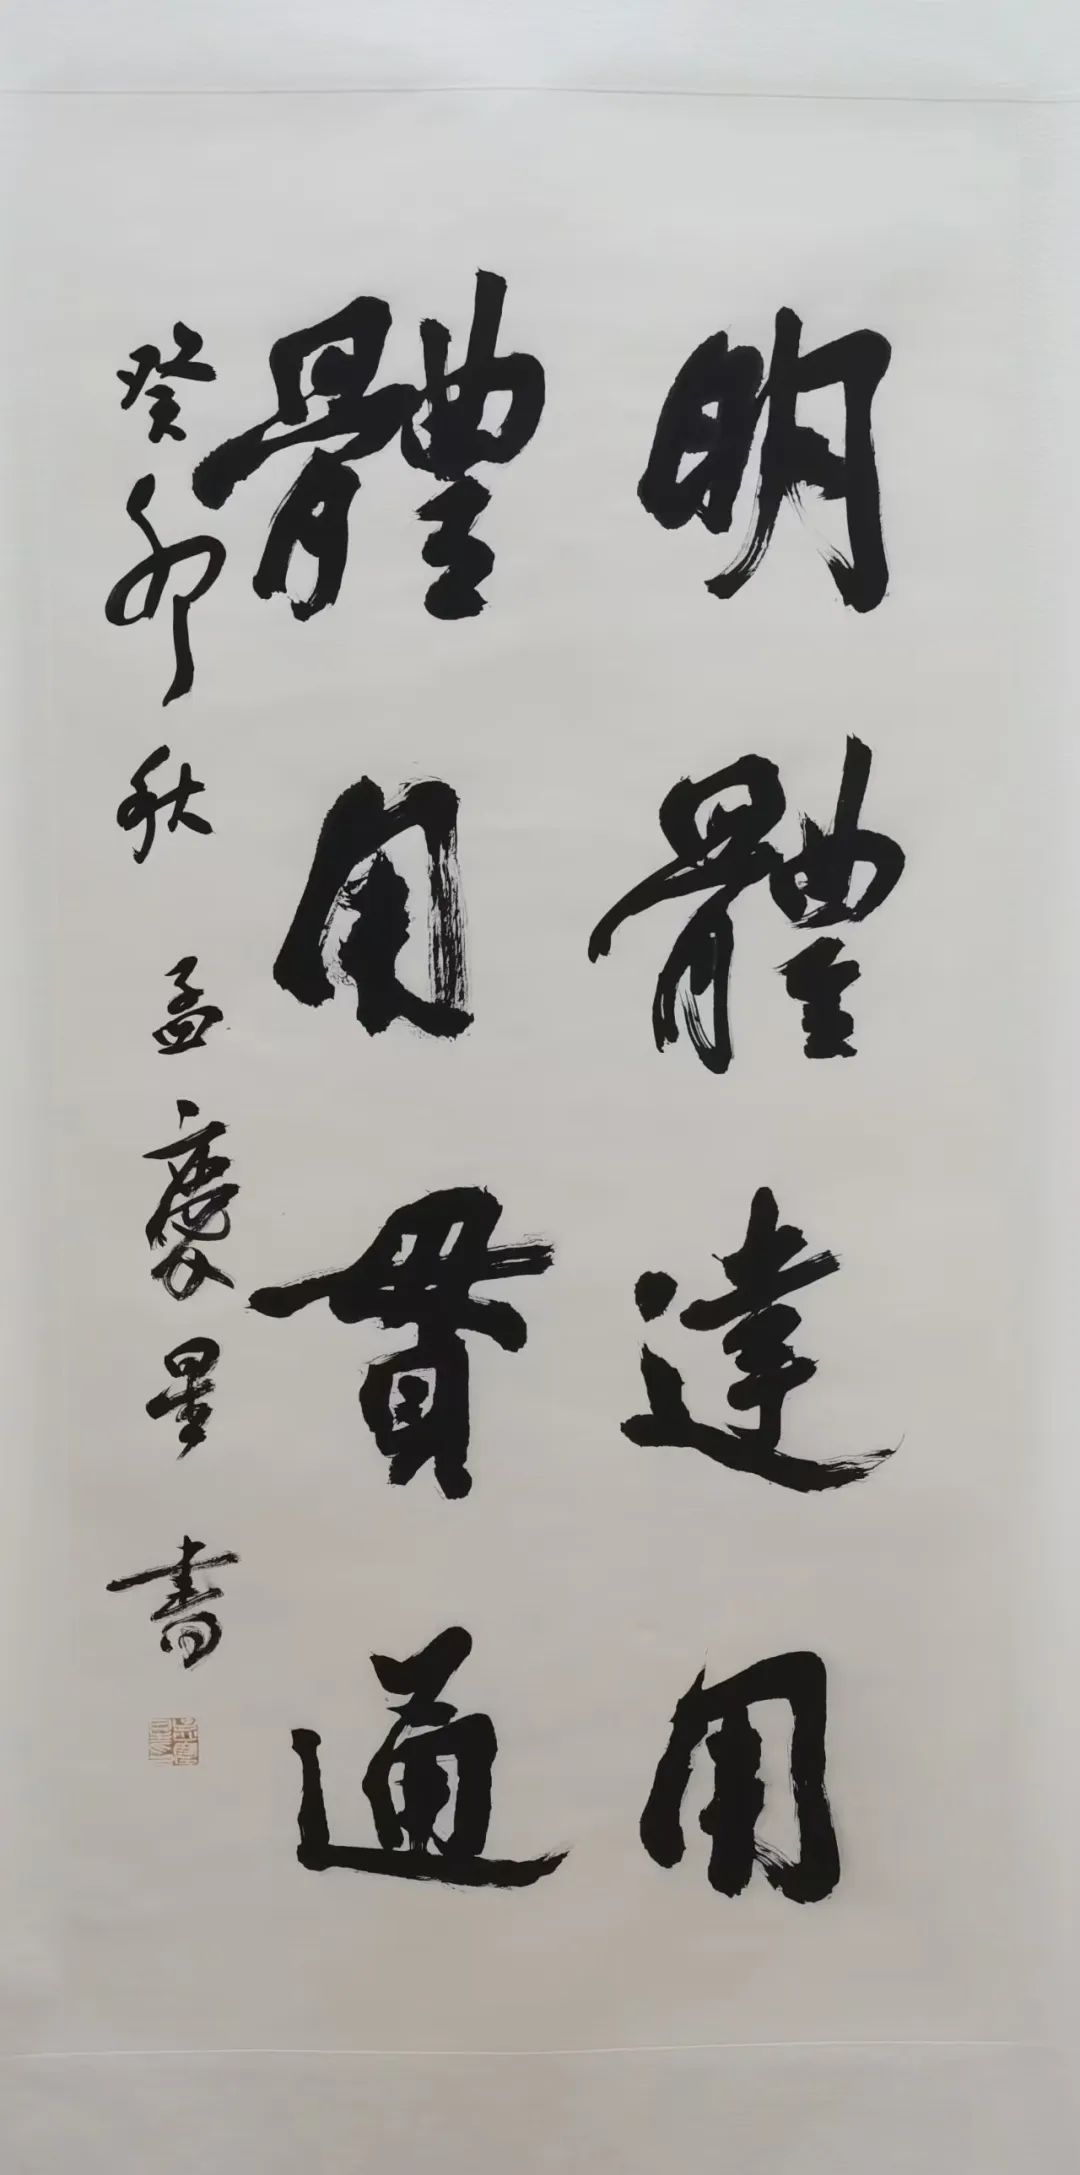 明體達用
體用貫通
癸卯秋 孟慶星書